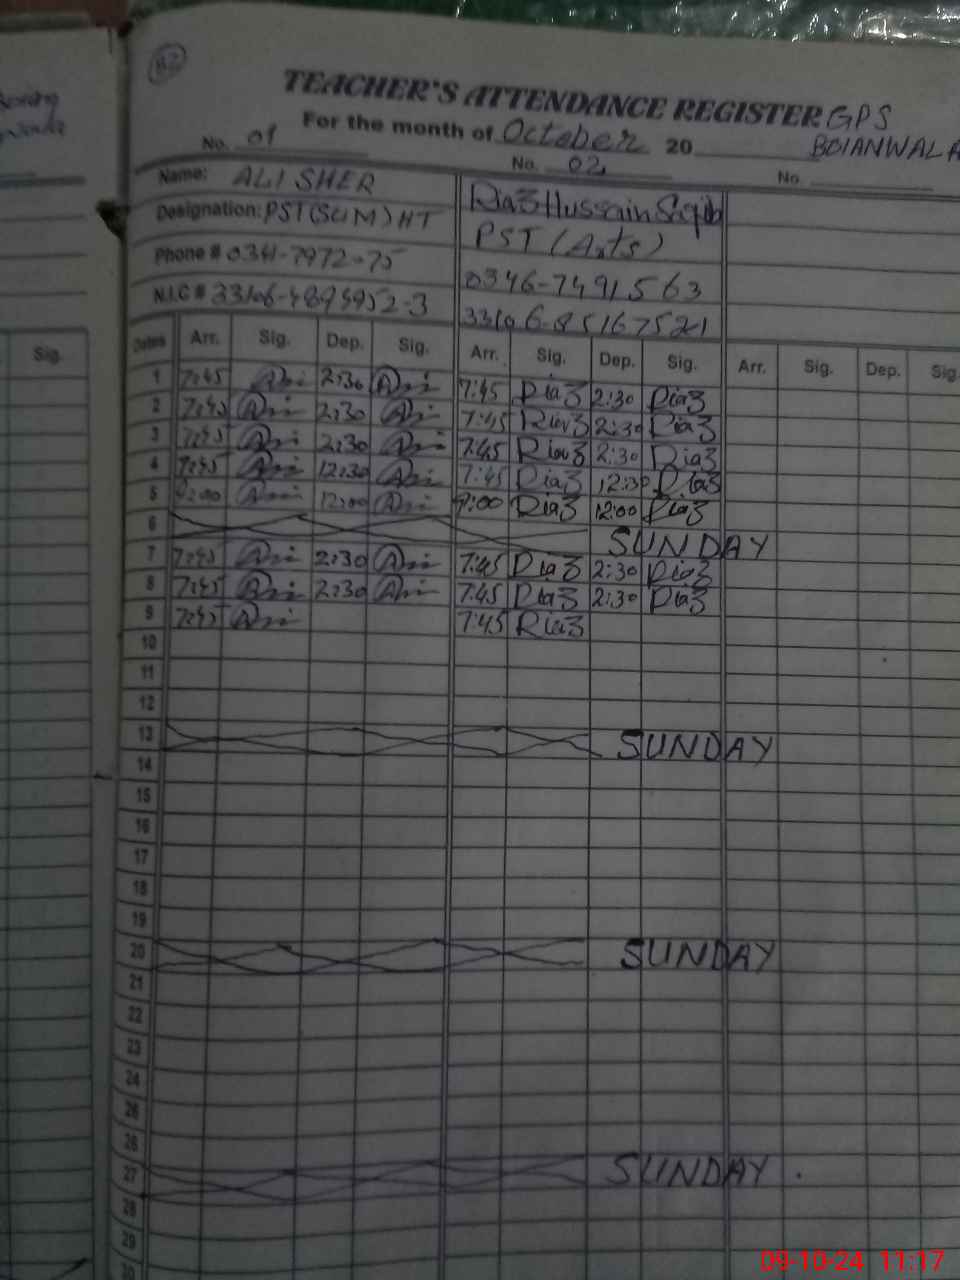 82
TEACHER'S ATTENDANCE REGISTER GPS
For the month of October 20 BOIANWALA
No. 01 No. 02 No.
Name: ALI SHER Riaz Hussain Saqib
Designation: PST (SUM) HT PST (Arts)
Phone # 0341-7972-75 0346-7491563
N.I.C #
Dates Arr. Sig. Dep. Sig. Arr. Sig. Dep. Sig. Arr. Sig. Dep. Sig.
1 7:45 2:30 7:45 Riaz 2:30 Riaz
2 7:45 2:30 7:45 Riaz 2:30 Riaz
3 7:45 2:30 7:45 Riaz 2:30 Riaz
4 7:45 12:30 7:45 Riaz 12:30 Riaz
5 12:00 Riaz 12:00 Riaz
6 SUNDAY
7 7:45 2:30 7:45 Riaz 2:30 Riaz
8 7:45 2:30 7:45 Riaz 2:30 Riaz
9 7:45 7:45 Riaz
10
11
12
13 SUNDAY
14
15
16
17
18
19
20 SUNDAY
21
22
23
24
25
26
27 SUNDAY
28
29
30
Sig.
09-10-24 11:17